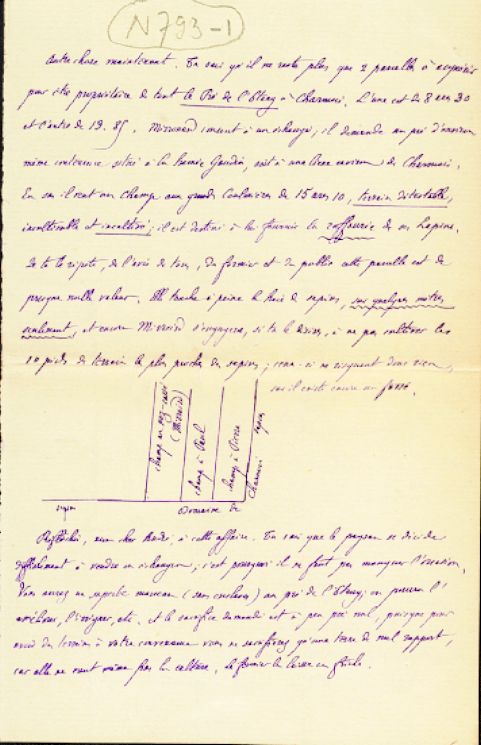 N793-1
Autre chose maintenant. Tu sais qu'il ne reste plus que 2 parcelles à acquérir
pour être propriétaire de tout le Pré de l'Etang à Charmoni. L'une est de 8 ares 30
et l'autre de 19.85. consent à un échange, il demande un pré d'environ
même contenance situé à la, soit à une lieue environ de Charmoni.
En sus il veut un champ aux grandes de 15 ares 10, terrain détestable,
incultivable et ; il est destiné à lui fournir la de ses lapins.
Je te le répète, de l'avis de tous, du fermier et du public cette parcelle est de
presque nulle valeur. Elle touche à peine la haie de sapins, sur quelques mètres
seulement, et encore s'engagera, si tu le désires, à ne pas cultiver les
10 pieds de terrain le plus proches des sapins ; ceux-ci ne risquent donc rien,
car il existe encore un fossé.
champ
champ à Paul
champ à Pierre
Charmoni
sapins
sapins
Domaine de
Réfléchis, mon cher André, à cette affaire. Tu sais que le paysan se décide
difficilement à vendre ou échanger, c'est pourquoi il ne faut pas manquer l'occasion.
Vous aurez un superbe morceau (sans enclaves) au pré de l'Etang ; on pourra l'
améliorer, l'irriguer, etc. et le sacrifice demandé est à peu près nul, puisque pour
avoir du terrain à votre convenance vous ne sacrifierez qu'une terre de nul rapport,
car elle ne vaut même pas la culture, le fermier la laisse en friche.